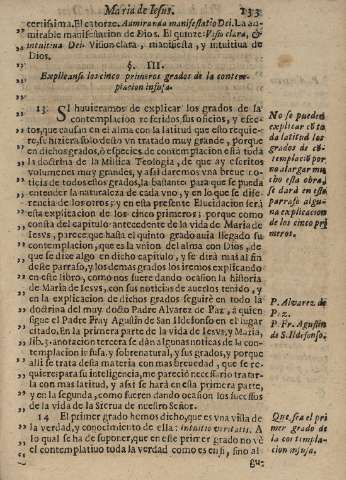 Maria de Iesus.
133
certissima. El catorze, Admiranda manifestatio Dei. La admirable
manifestacion de Dios. El quinze: Visio clara, &
intuitiva Dei. Vision clara, manifiesta, y intuitiva de
Dios.
§. III.
Explicanse los cinco primeros grados de la contemplacion
infusa.
13 Si huvieramos de explicar los grados de la
contemplacion referidos, sus oficios, y efectos,
que causan en el alma con la latitud que esto requiere,
se hiziera solo desto vn tratado muy grande, porque
en dichos grados, ò especies de contemplacion està toda
la doctrina de la Mistica Teologia, de que ay escritos
volumenes muy grandes, y assi daremos vna breve noticia
de todos estos grados, la bastante para que se pueda
entender la naturaleza de cada vno, y en lo que se diferencia
de los otros; y en esta presente Elucidacion serà
esta explicacion de los cinco primeros; porque como
consta del capitulo antecedente de la vida de Maria de
Iesvs, parece que hasta el quinto grado avia llegado su
contemplacion, que es la vnion del alma con Dios, de
que se dize algo en dicho capitulo, y se dirà mas al fin
deste parrafo, y los demàs grados los iremos explicando
en este libro, como nos fuere dando ocasion la historia
de Maria de Iesvs, con sus noticias de averlos tenido, y
en la explicacion de dichos grados seguirè en todo la
doctrina del muy docto Padre Alvarez de Paz, à quien
sigue el Padre Fray Agustin de San Ildefonso en el lugar
citado. En la primera parte de la vida de Iesvs, y Maria,
lib. 3. anotacion tercera se dàn algunas noticias de la contemplacion
infusa, y sobrenatural, y sus grados, y porque
alli se trata desta materia con mas brevedad, que se requiere:
para su inteligencia, me pareciò necessario tratarla
con mas latitud, y assi se harà en esta primera parte,
y en la segunda, como fueren dando ocasion los sucessos
de la vida de la Sierua de nuestro Señor.
14 El primer grado hemos dicho, que es vna vista de
la verdad, y conocimiento de ella: intuitio veritatis. A
lo qual se ha de suponer, que en este primer grado no vè
el contemplatiuo toda la verdad como es en si, sino al-
gu-
No se pueden
explicar cõ toda
latitud los
grados de cõtemplaciõ
por
no alargar mucho
esta obra,
se darà en este
parrafo alguna
explicacion
de los cinco primeros.
P. Alvarez de
Paz.
P. Fr. Agustin
de S. Ildefonso.
Que sea el primer
grado de
la contemplacion
infusa.